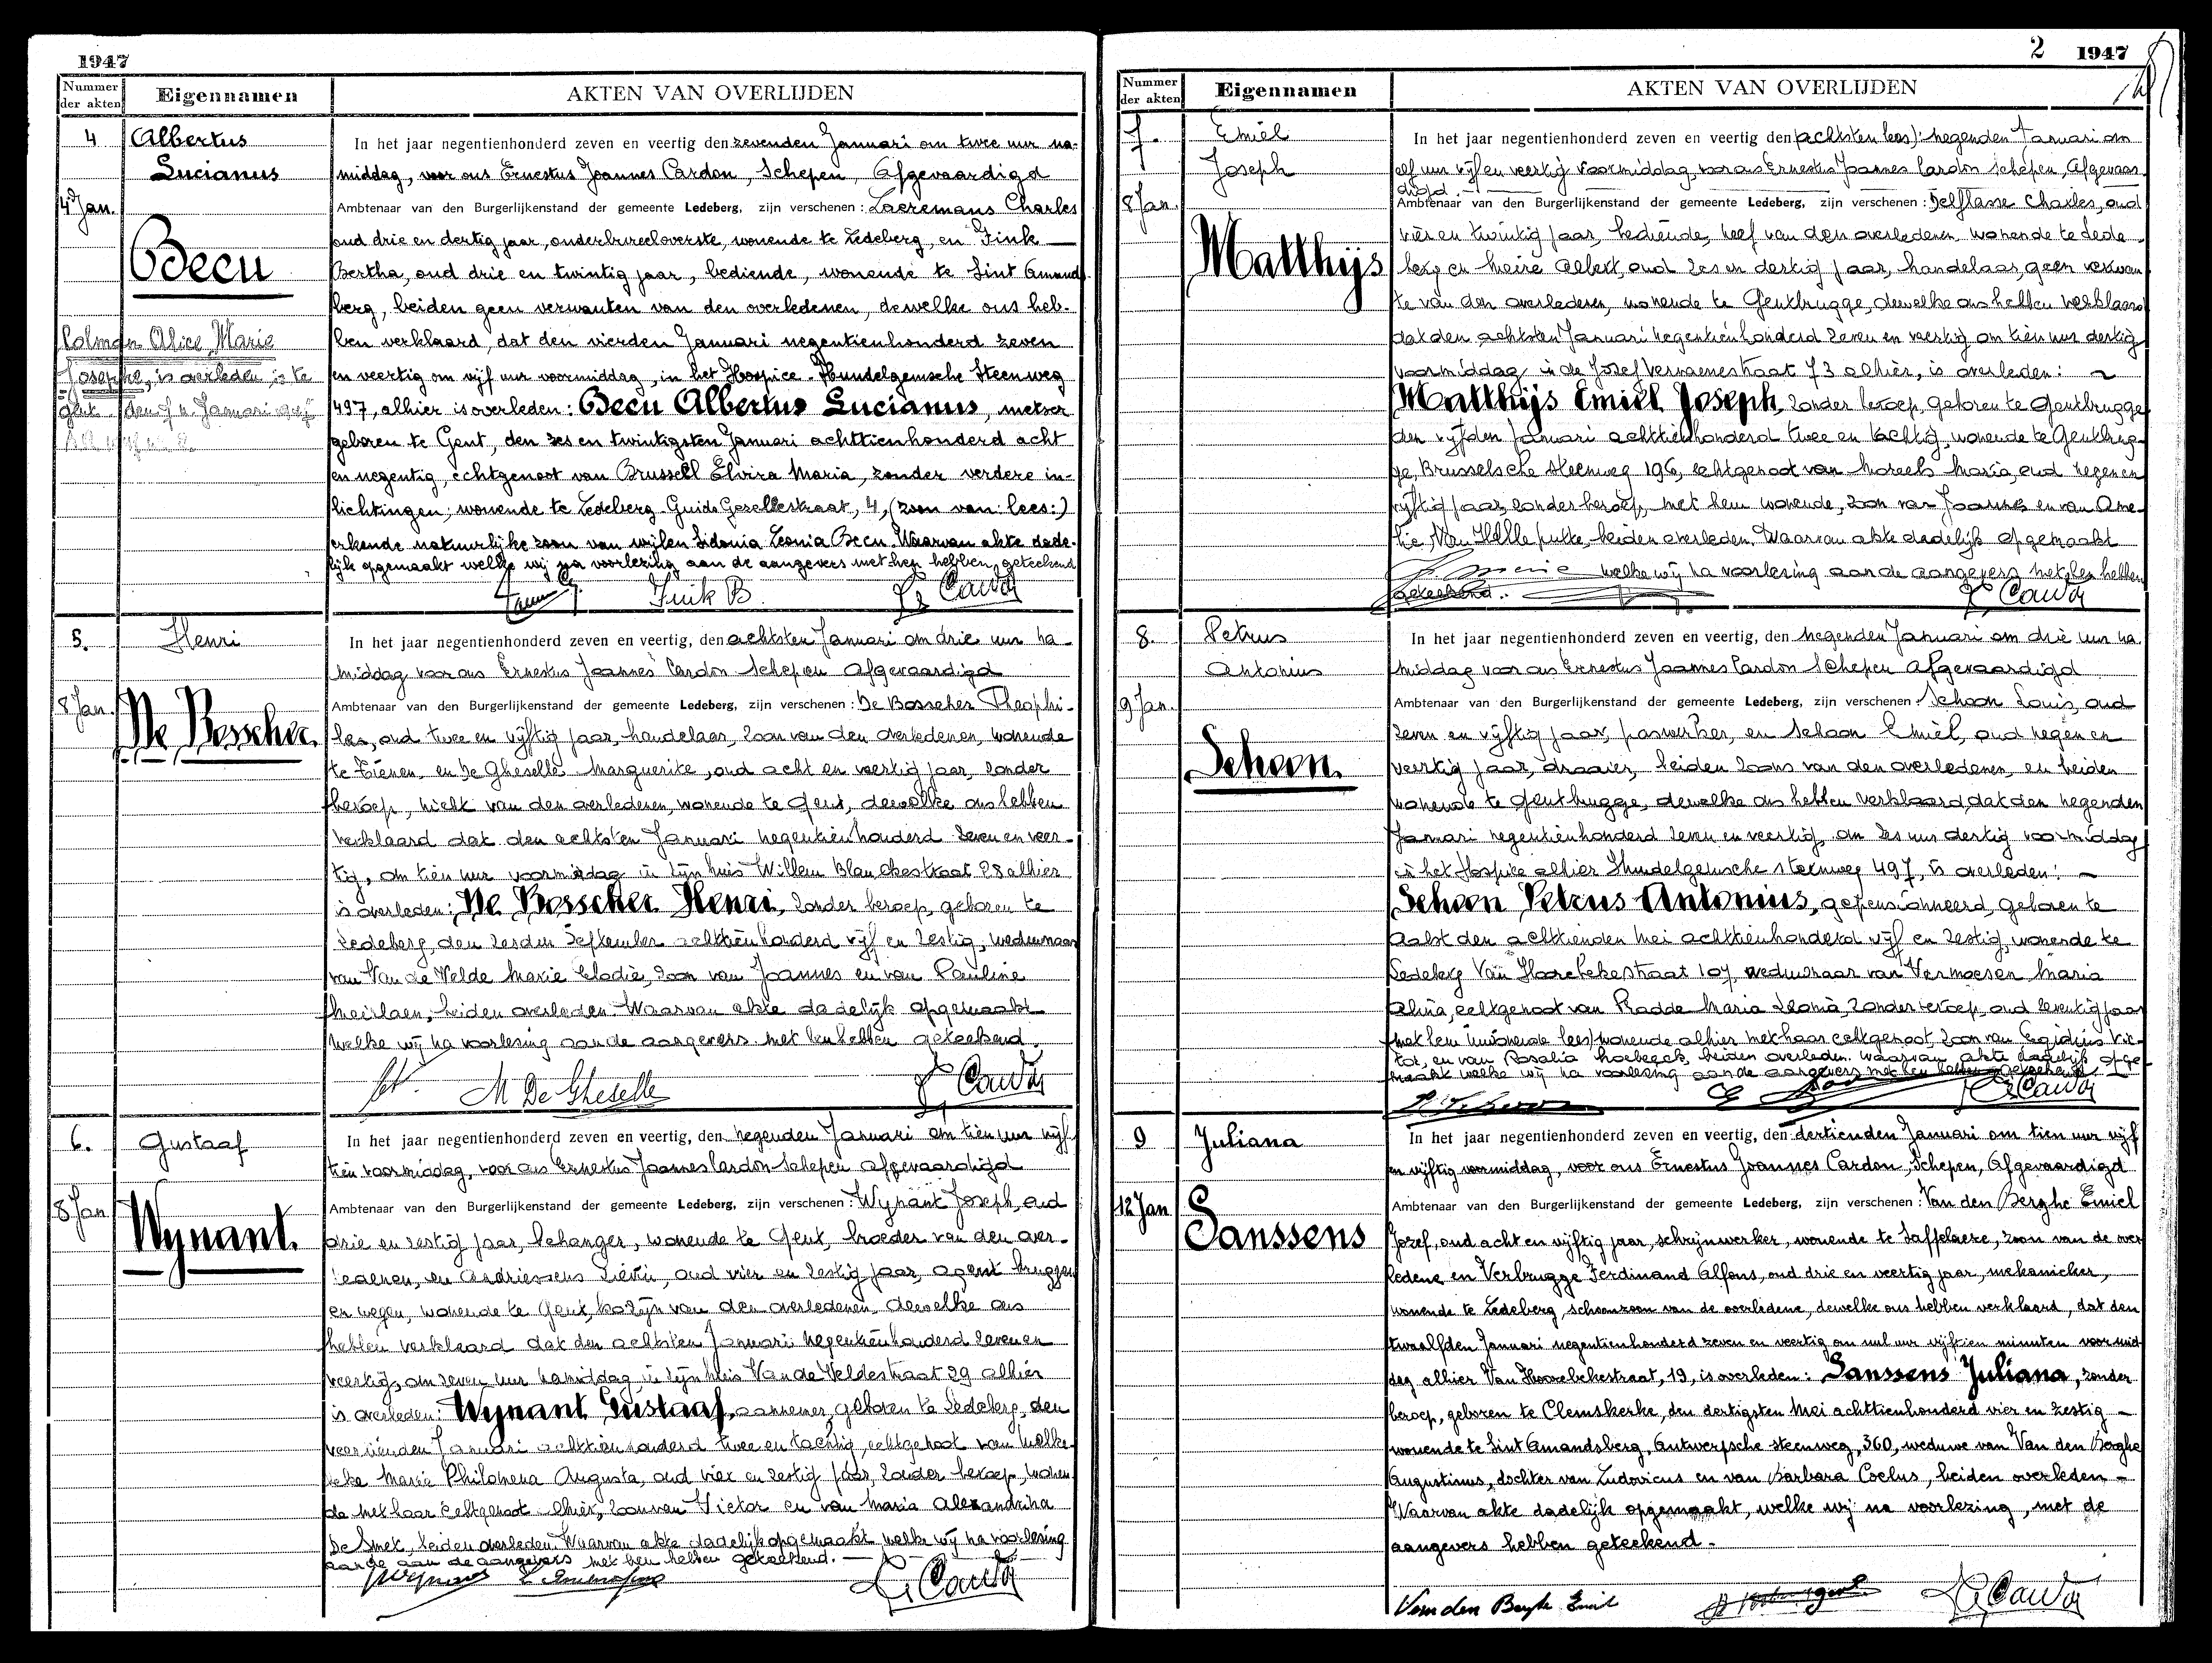 1947
Nummer der akten
Eigennamen
AKTEN VAN OVERLIJDEN
4
Albertus
Lucianus
4 Jan.
Becu
Colman Alice Marie
Josephe, is overleden te
Gent den
In het jaar negentienhonderd zeven en veertig den zevenden Januari om twee uur na-
middag, voor ons Ernestus Joannes Cardon, Schepen, Afgevaardigd
Ambtenaar van den Burgerlijkenstand der gemeente Ledeberg, zijn verschenen: Laeremans Charles
oud drie en dertig jaar, onderbureeloverste, wonende te Ledeberg, en Fink
Bertha, oud drie en twintig jaar, bediende, wonende te Sint Amands
berg, beiden geen verwanten van den overledenen, dewelke ons heb-
ben verklaard, dat den vierden Januari negentienhonderd zeven
en veertig om vijf uur voormiddag, in het Hospice - Hundelgemsche Steenweg
497, alhier is overleden: Becu Albertus Lucianus, metser
geboren te Gent, den zes en twintigsten Januari achttienhonderd acht
en negentig, echtgenoot van Brussell Elvira Maria, zonder verdere in-
lichtingen; wonende te Ledeberg Guido Gezellestraat, 4, (zoon van: lees:)
erkende natuurlijke zoon van wijlen Sidonia Leonia Becu. Waarvan akte dade-
lijk opgemaakt welke wij na voorlezing aan de aangevers met hen hebben geteekend
Fink B. E. Cardon
5.
Henri
8 Jan.
De Bosscher.
In het jaar negentienhonderd zeven en veertig, den achtsten Januari om drie uur na-
middag voor ons Ernestus Joannes Cardon Schepen Afgevaardigd
Ambtenaar van den Burgerlijkenstand der gemeente Ledeberg, zijn verschenen: De Bosscher Theophi-
les, oud twee en vijftig jaar, handelaar, zoon van den overledenen, wonende
te Tienen, en De Gheselle Marguerite, oud acht en veertig jaar, zonder
beroep, nicht van den overledenen, wonende te Gent, dewelke ons hebben
verklaard dat den achtsten Januari negentienhonderd zeven en veer-
tig, om tien uur voormiddag in zijn huis Willem Blanckestraat 28 alhier
is overleden: De Bosscher Henri, zonder beroep, geboren te
Ledeberg, den zesden September achttienhonderd vijf en zestig, weduwnaar
van Van de Velde Marie Elodie, zoon van Joannes en van Pauline
Meirlaen, beiden overleden. Waarvan akte dadelijk opgemaakt
welke wij na voorlesing aan de aangevers met hen hebben geteekend.
M De Gheselle E. Cardon
6.
Gustaaf
8 Jan
Wynant.
In het jaar negentienhonderd zeven en veertig, den negenden Januari om tien uur vijf-
tien voormiddag, voor ons Ernestus Joannes Cardon Schepen afgevaardigd
Ambtenaar van den Burgerlijkenstand der gemeente Ledeberg, zijn verschenen: Wynant Joseph, oud
drie en zestig jaar, behanger, wonende te Gent, broeder van den over-
ledenen, en Andriessens Liévin, oud vier en zestig jaar, agent bruggen
en wegen, wonende te Gent, kozijn van den overledenen, dewelke ons
hebben verklaard dat den achtsten Januari negentienhonderd zeven en
veertig, om zeven uur namiddag in zijn huis Van de Veldestraat 29 alhier
is overleden: Wynant Gustaaf, aannemer, geboren te Ledeberg, den
veertienden Januari achttienhonderd twee en tachtig, echtgenoot van
Marie Philomena Augusta, oud vier en zestig jaar, zonder beroep, wonen-
de met haar echtgenoot alhier, zoon van Victor en van Maria Alexandrina
De Smet, beiden overleden. Waarvan akte dadelijk opgemaakt welke wij na voorlesing
aan de aangevers met hen hebben geteekend.
E. Cardon
2 1947
Nummer der akten
Eigennamen
AKTEN VAN OVERLIJDEN
7.
Emiel
Joseph
8 Jan.
Matthijs
In het jaar negentienhonderd zeven en veertig den (achtsten lees): negenden Januari om
elf uur vijf en veertig voormiddag, voor ons Ernestus Joannes Cardon schepen, Afgevaar-
digd
Ambtenaar van den Burgerlijkenstand der gemeente Ledeberg, zijn verschenen: Delflasse Charles, oud
vier en twintig jaar, bediende, neef van den overledenen, wonende te Lede-
berg en Meire Albert, oud zes en dertig jaar, handelaar, geen verwan
te van den overledenen, wonende te Gentbrugge, dewelke ons hebben verklaard
dat den achtsten Januari negentienhonderd zeven en veertig om tien uur dertig
voormiddag in de Jozef Vervaenestraat 73 alhier, is overleden:
Matthijs Emiel Joseph, zonder beroep, geboren te Gentbrugge
den vijfden Januari achttienhonderd twee en tachtig, wonende te Gentbrug-
ge, Brusselsche steenweg 196, echtgenoot van Moreels Maria, oud negen en
vijftig jaar, zonder beroep, met hem wonende, zoon van Joannes en van Ame-
lie Van Hellputte, beiden overleden. Waarvan akte dadelijk opgemaakt
welke wij na voorlesing aan de aangevers met hen hebben
geteekend. E. Cardon
8.
Petrus
Antonius
9 Jan.
Schoon.
In het jaar negentienhonderd zeven en veertig, den negenden Januari om drie uur na
middag voor ons Ernestus Joannes Cardon Schepen Afgevaardigd
Ambtenaar van den Burgerlijkenstand der gemeente Ledeberg, zijn verschenen: Schoon Louis, oud
zeven en vijftig jaar, paswerker, en Schoon Emiel, oud negen en
veertig jaar, draaier, beiden zoons van den overledenen, en beiden
wonende te Gentbrugge, dewelke ons hebben verklaard, dat den negenden
Januari negentienhonderd zeven en veertig, om zes uur dertig voormiddag
in het Hospice alhier Hundelgemsche steenweg 497, is overleden:
Schoon Petrus Antonius, gepensionneerd, geboren te
Aalst den achttienden Mei achttienhonderd vijf en zestig, wonende te
Ledeberg Van Hoorebekestraat 107, weduwnaar van Vermoesen Maria
Alina, echtgenoot van Radde Maria Leonia, zonder beroep, oud zeventig jaar
met hem inwonende lees) wonende alhier met haar echtgenoot, zoon van Egidius Vic-
tor, en van Rosalia, beiden overleden. Waarvan akte dadelijk opge-
maakt welke wij na voorlesing aan de aangevers met hen hebben geteekend.
E. Cardon
9
Juliana
12 Jan
Janssens
In het jaar negentienhonderd zeven en veertig, den dertienden Januari om tien uur vijf
en vijftig voormiddag, voor ons Ernestus Joannes Cardon, Schepen, Afgevaardigd
Ambtenaar van den Burgerlijkenstand der gemeente Ledeberg, zijn verschenen: Van den Berghe Emiel
Jozef, oud acht en vijftig jaar, schrijnwerker, wonende te Saffelaere, zoon van de over
ledene en Verbrugge Ferdinand Alfons, oud drie en veertig jaar, mekanieker,
wonende te Ledeberg, schoonzoon van de overledene, dewelke ons hebben verklaard, dat den
twaalfden Januari negentienhonderd zeven en veertig om nul uur vijftien minuten voormid-
dag alhier Van Hoorebekestraat, 19, is overleden: Janssens Juliana, zonder
beroep, geboren te Clemskerke, den dertigsten Mei achttienhonderd vier en zestig —
wonende te Sint Amandsberg, Antwerpsche steenweg, 360, weduwe van Van den Berghe
Augustinus, dochter van Ludovicus en van Barbara Coelus, beiden overleden —
Waarvan akte dadelijk opgemaakt, welke wij na voorlezing, met de
aangevers hebben geteekend.
Van den Berghe Emiel E. Cardon